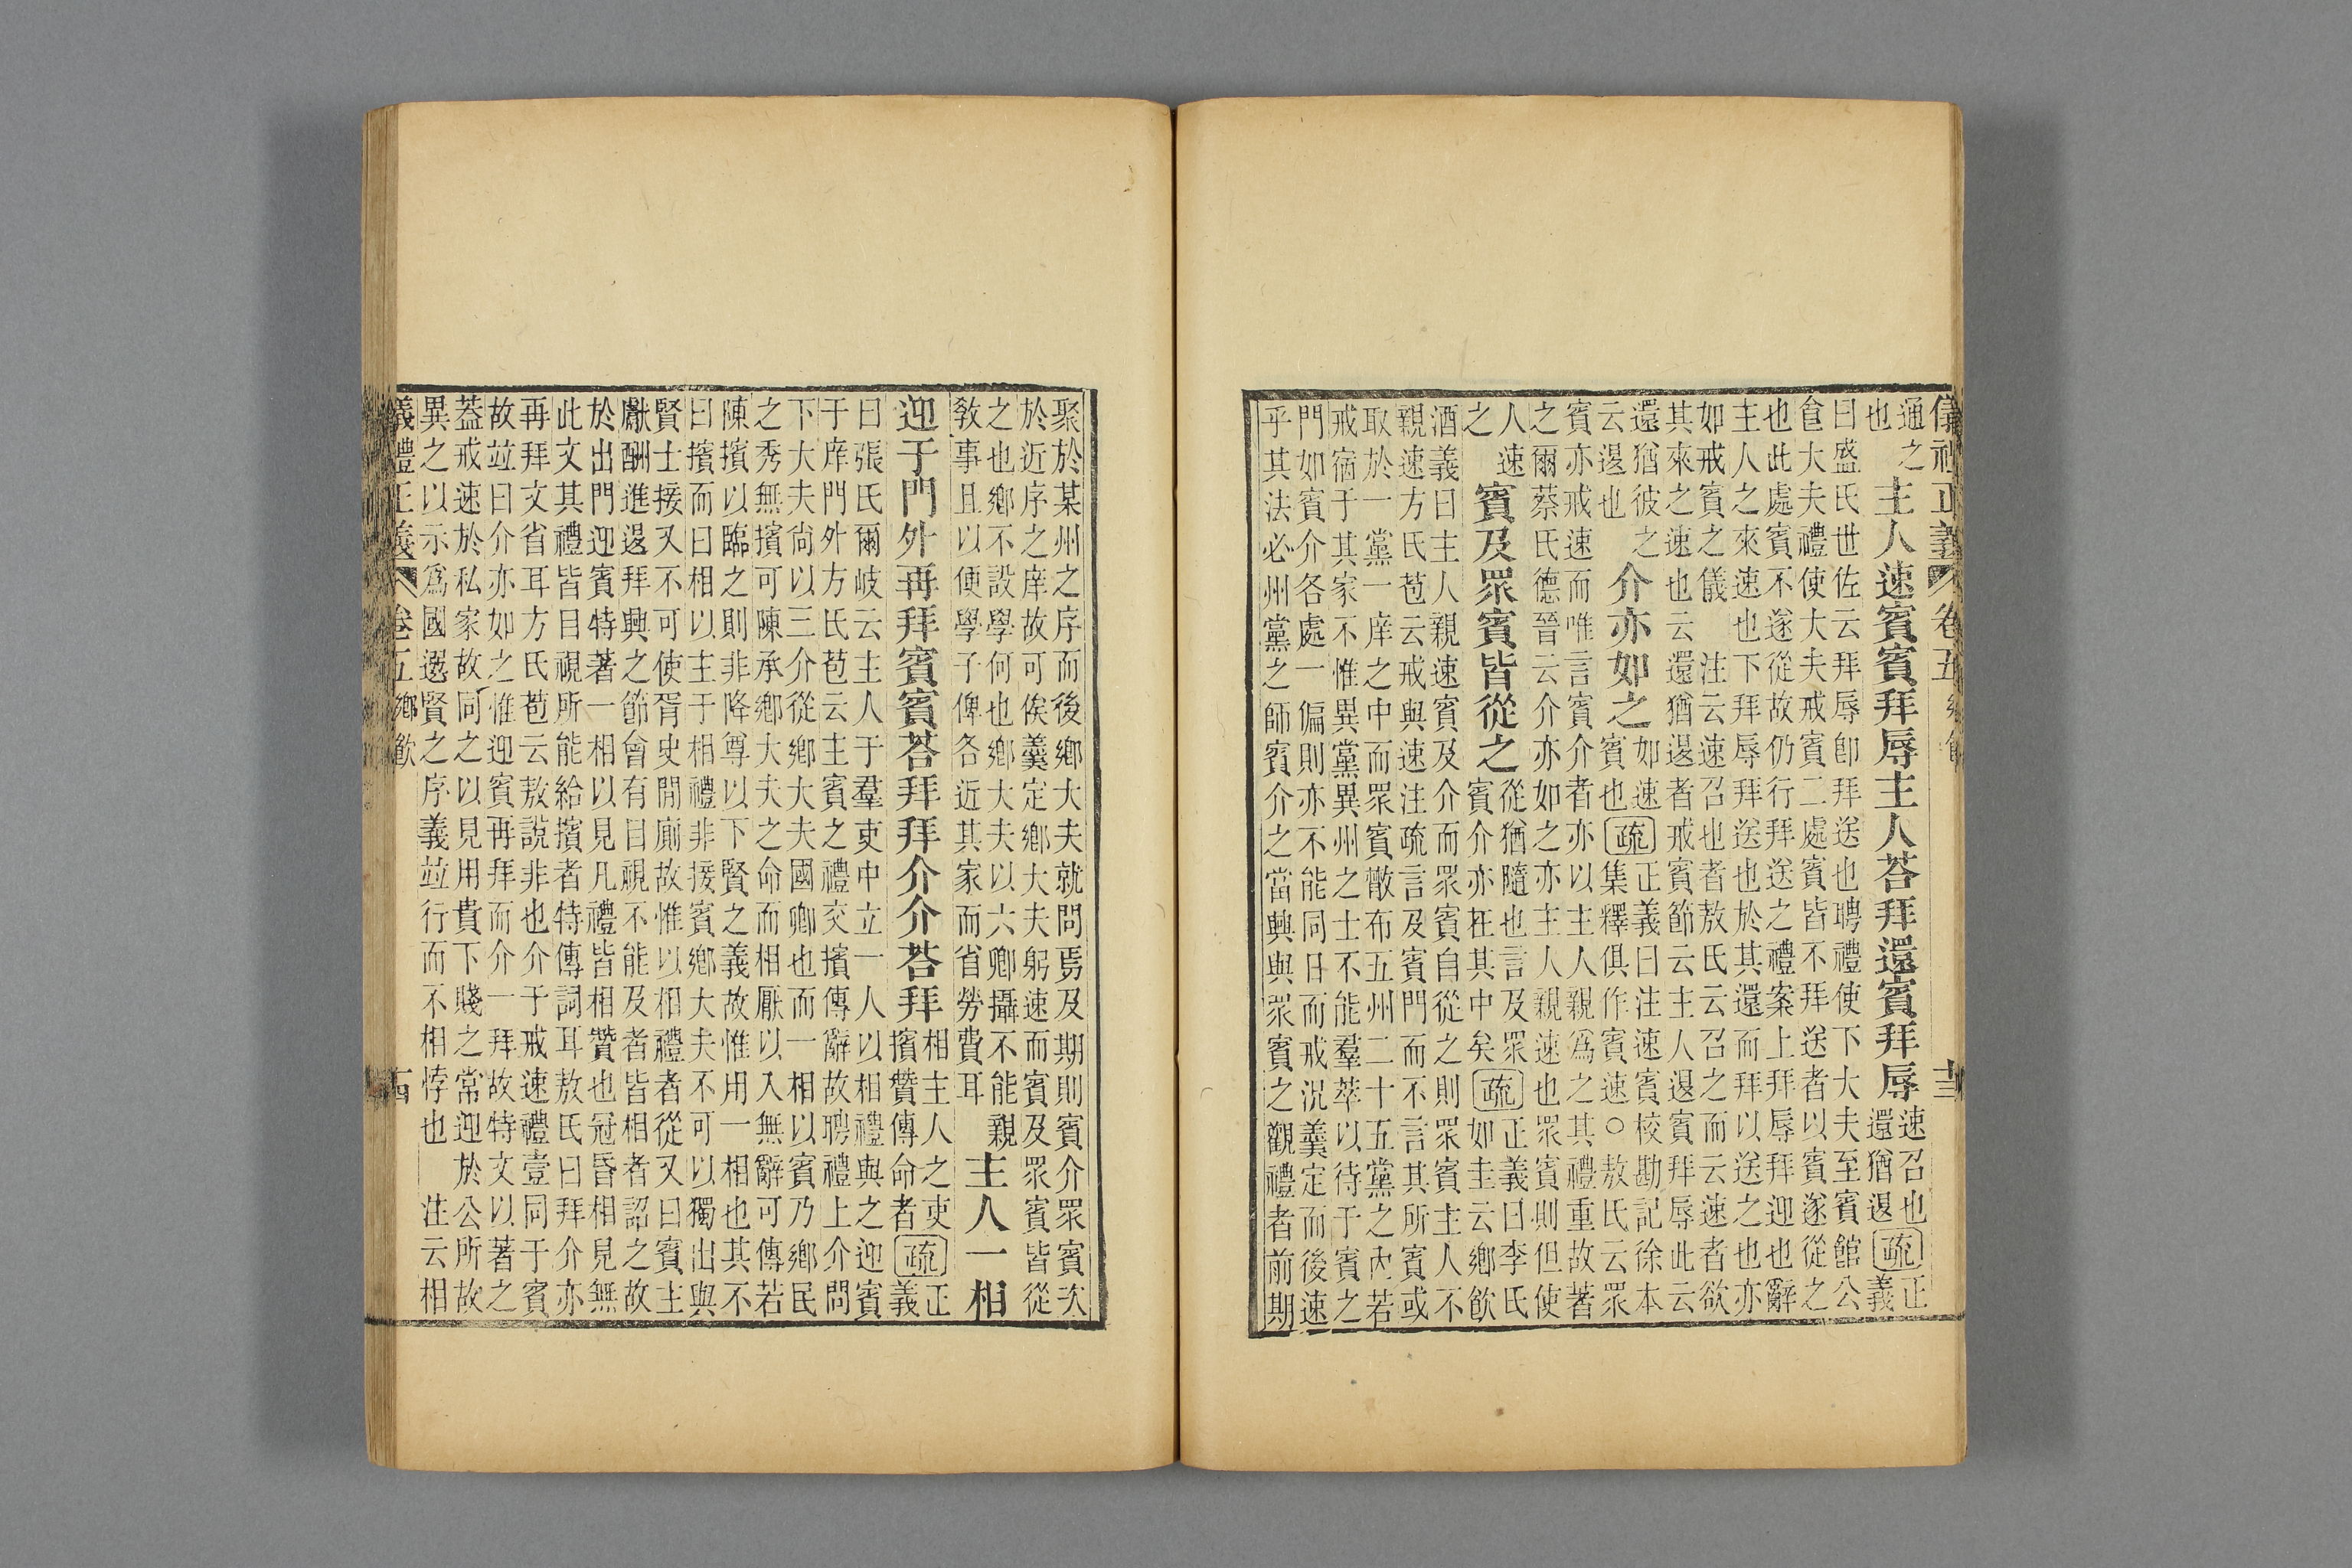 儀禮正義　卷五　鄉飲　十三
通之
也
主人速賓賓拜辱主人荅拜還賓拜辱
速召也
還猶退
疏
正
義
曰盛氏世佐云拜辱卽拜送也聘禮使下大夫至賓館公
食大夫禮使大夫戒賓二處賓皆不拜送者以賓遂從之
也此處賓不遂從故仍行拜送之禮案上拜辱拜迎也辭
主人之來速也下拜辱拜送也於其還而拜以送之也亦
如戒賓之儀　注云速召也者敖氏云召之而云速者欲
其來之速也云還猶退者戒賓節云主人退賓拜辱此云
還猶彼之
云退也
介亦如之
如速
賓也
疏
正義曰注速賓校勘記徐本
集釋俱作賓速○敖氏云眾
賓亦戒速而唯言賓介者亦以主人親爲之其禮重故著
之爾蔡氏德晉云介亦如之亦主人親速也眾賓則但使
人速
之
賓及眾賓皆從之
從猶隨也言及眾
賓介亦在其中矣
疏
正義曰李氏
如圭云鄉飲
酒義曰主人親速賓及介而眾賓自從之則眾賓主人不
親速方氏苞云戒與速注疏言及賓門而不言其所賓或
取於一黨一庠之中而眾賓散布五州二十五黨之內若
戒宿于其家不惟異黨異州之士不能羣萃以待于賓之
門如賓介各處一偏則亦不能同日而戒況羹定而後速
乎其法必州黨之師賓介之當興與眾賓之觀禮者前期
聚於某州之序而後鄉大夫就問焉及期則賓介眾賓次
於近序之庠故可俟羹定鄉大夫躬速而賓及眾賓皆從
之也鄉不設學何也鄉大夫以六卿攝不能親
教事且以便學子俾各近其家而省勞費耳
主人一相
迎于門外再拜賓賓荅拜拜介介荅拜
相主人之吏
擯贊傳命者
疏
正
義
曰張氏爾岐云主人于羣吏中立一人以相禮與之迎賓
于庠門外方氏苞云主賓之禮交擯傳辭故聘禮上介問
下大夫尙以三介從鄉大夫國卿也而一相以賓乃鄉民
之秀無擯可陳承鄉大夫之命而相厭以入無辭可傳若
陳擯以臨之則非降尊以下賢之義故惟用一相也其不
曰擯而曰相以主于相禮非接賓鄉大夫不可以獨出與
賢士接又不可使胥史閒廁故惟以相禮者從又曰賓主
獻酬進退拜興之節會有目視不能及者皆相者詔之故
於出門迎賓特著一相以見凡禮皆相贊也冠昏相見無
此文其禮皆目視所能給擯者特傳詞耳敖氏曰拜介亦
再拜文省耳方氏苞云敖說非也介于戒速禮壹同于賓
故竝曰介亦如之惟迎賓再拜而介一拜故特文以著之
蓋戒速於私家故同之以見用貴下賤之常迎於公所故
異之以示爲國選賢之序義竝行而不相悖也　注云相
儀禮正義　卷五　鄉飲　十四